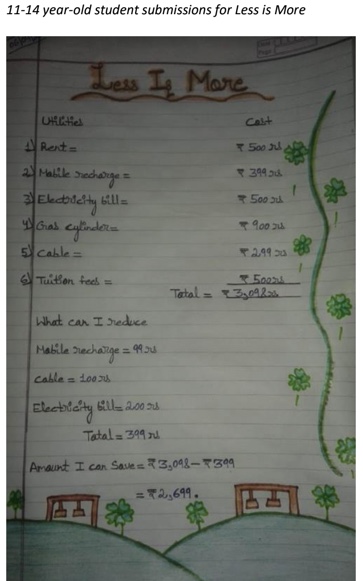 11-14 year-old student submissions for Less is More
Less Is More
Utilities Cost
1) Rent = ₹ 500 rs
2) Mobile recharge = ₹ 399 rs
3) Electricity bill = ₹ 500 rs
4) Gas cylinder = ₹ 900 rs
5) Cable = ₹ 299 rs
6) Tuition fees = ₹ 500 rs
Total = ₹ 3,098 rs
What can I reduce
Mobile recharge = 99 rs
Cable = 100 rs
Electricity bill = 200 rs
Total = 399 rs
Amount I can Save = ₹ 3,098 – ₹ 399
= ₹ 2,699.